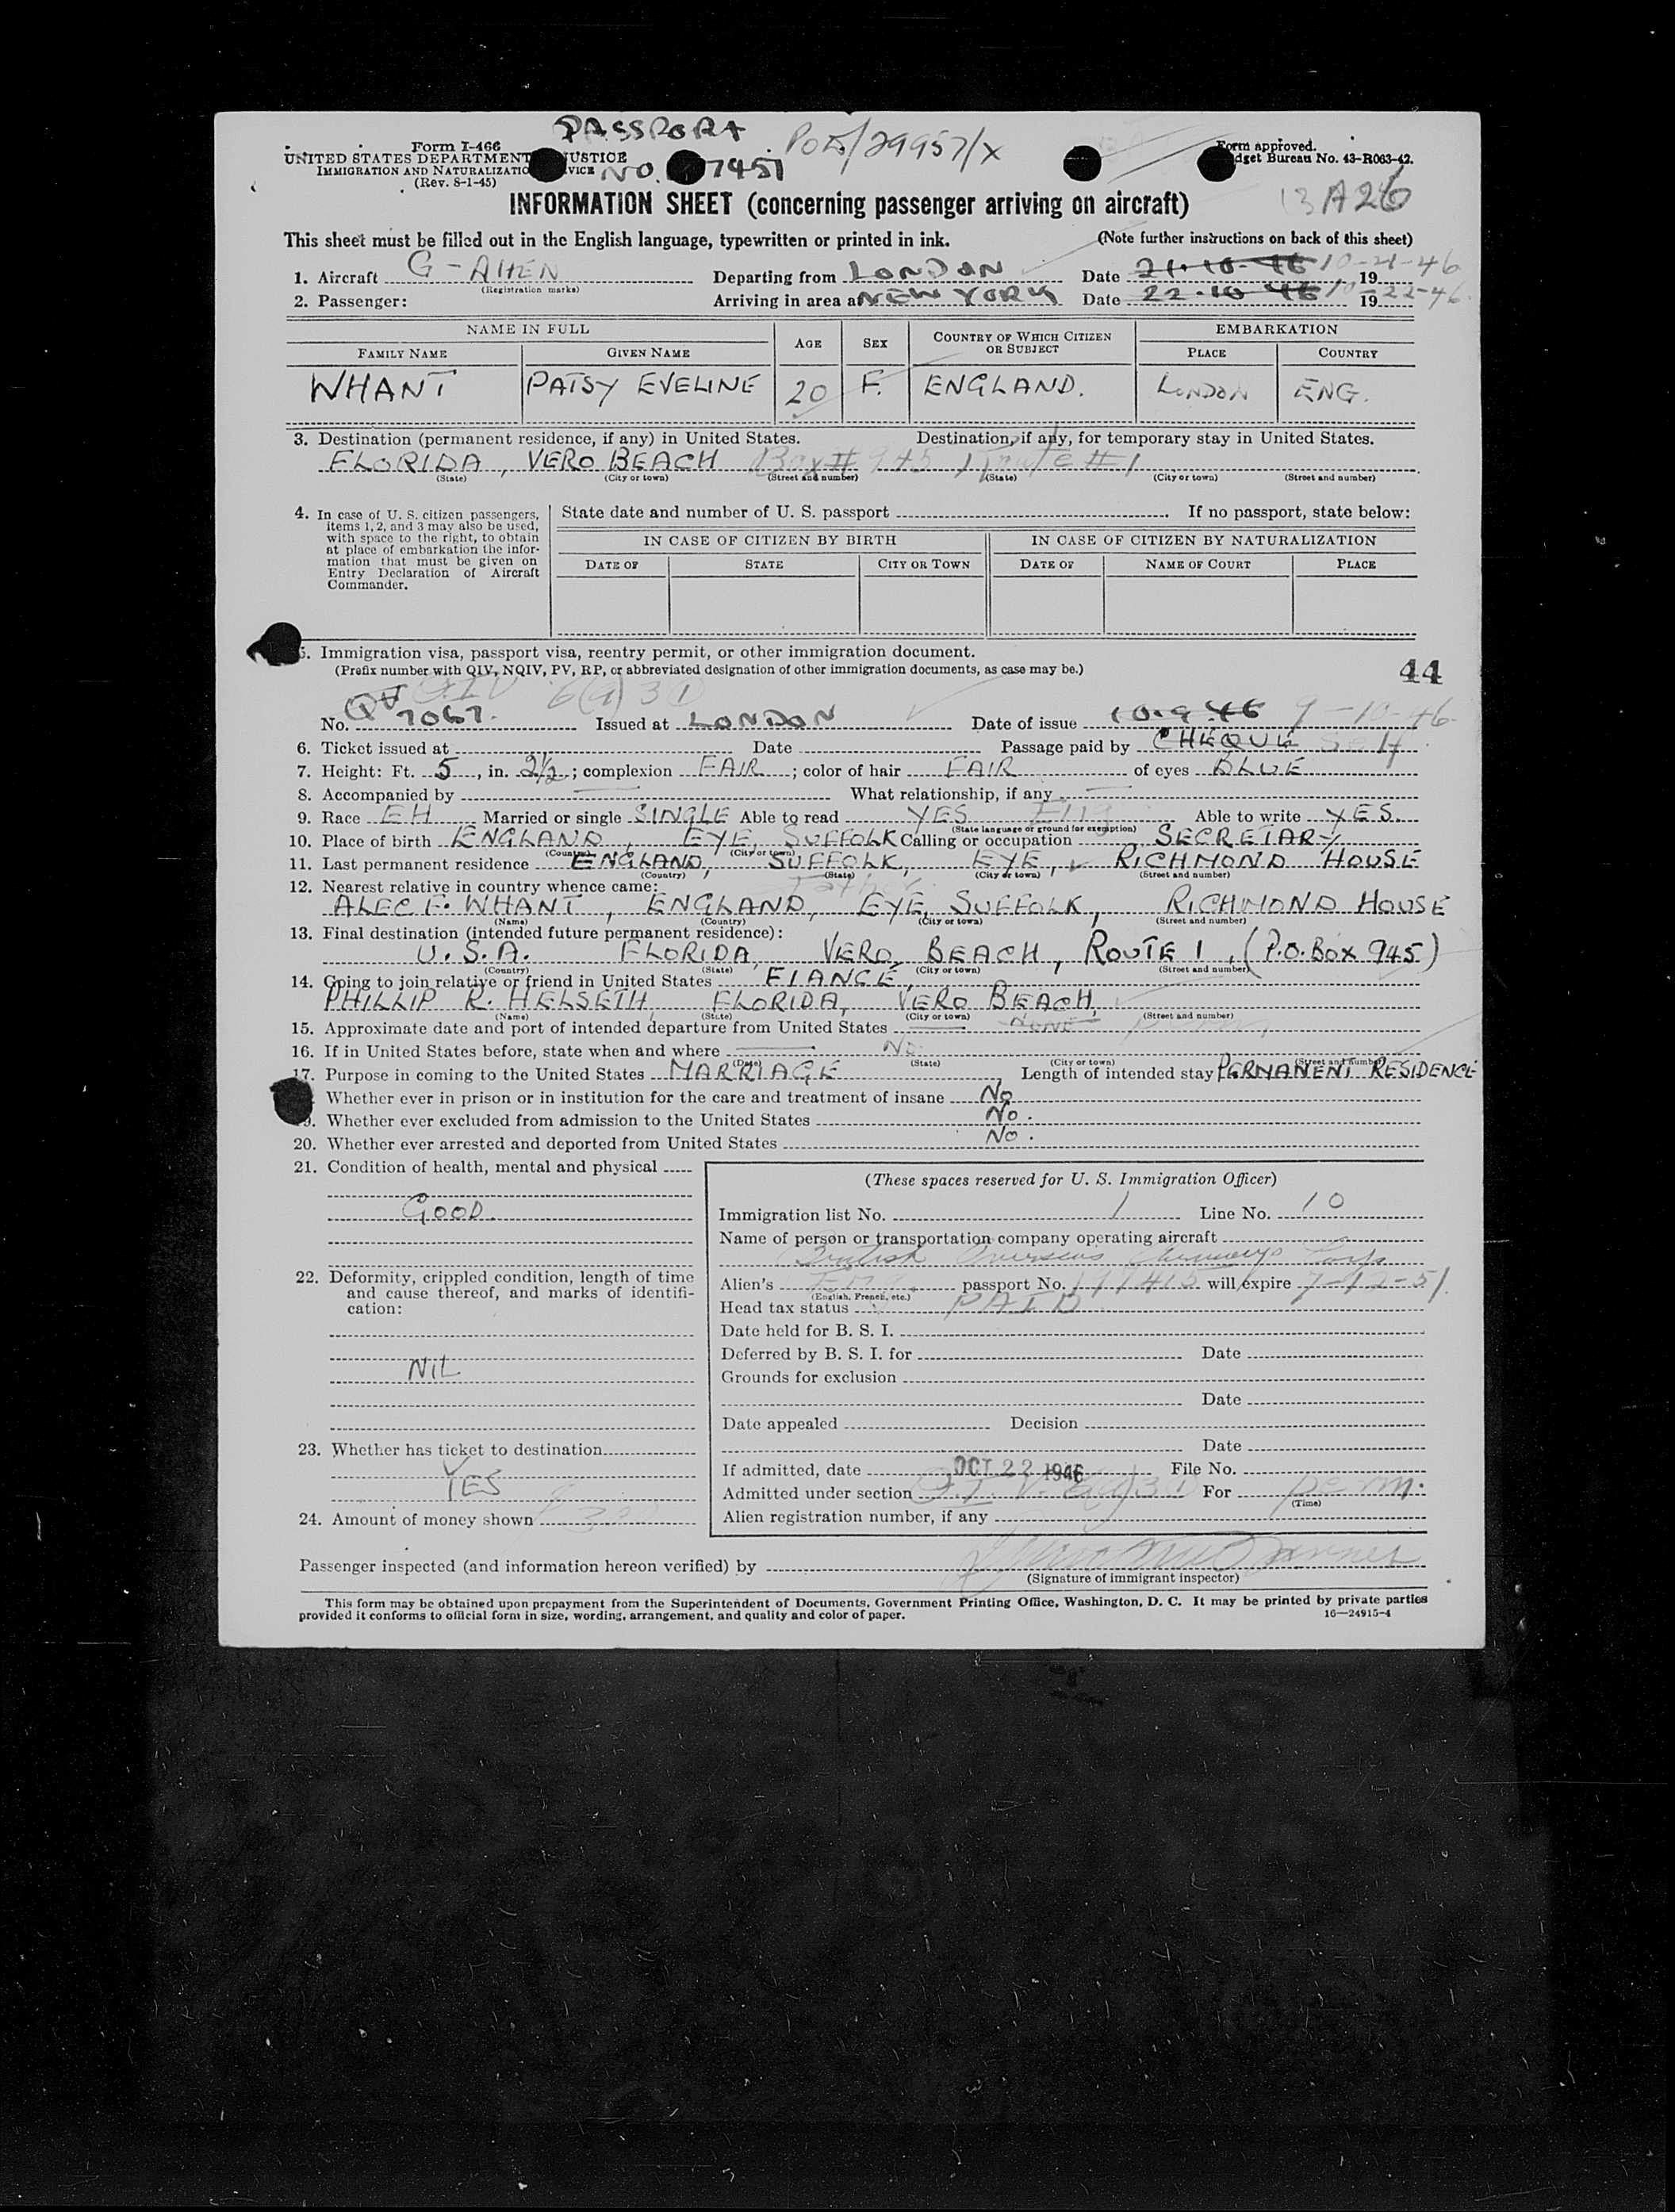 PASSPORT
Form I-466
UNITED STATES DEPARTMENT JUSTICE NO. 7451
IMMIGRATION AND NATURALIZATIO VICE
(Rev. 8-1-45)
/29957/X
Form approved.
dget Bureau No. 43-R063-42.
13 A 26
INFORMATION SHEET (concerning passenger arriving on aircraft)
This sheet must be filled out in the English language, typewritten or printed in ink. (Note further instructions on back of this sheet)
1. Aircraft G-AHEN Departing from LONDON Date 21·10·46 10-21-46 19
(Registration marks)
2. Passenger: Arriving in area at NEW YORK Date 22·10·46 10-22-46 19
NAME IN FULL AGE SEX COUNTRY OF WHICH CITIZEN OR SUBJECT EMBARKATION
FAMILY NAME GIVEN NAME PLACE COUNTRY
WHANT PATSY EVELINE 20 F. ENGLAND. LONDON ENG.
3. Destination (permanent residence, if any) in United States. Destination, if any, for temporary stay in United States.
FLORIDA, VERO BEACH Box # 945 Route #1
(State) (City or town) (Street and number) (State) (City or town) (Street and number)
4. In case of U. S. citizen passengers, items 1, 2, and 3 may also be used, with space to the right, to obtain at place of embarkation the information that must be given on Entry Declaration of Aircraft Commander.
State date and number of U. S. passport If no passport, state below:
IN CASE OF CITIZEN BY BIRTH IN CASE OF CITIZEN BY NATURALIZATION
DATE OF STATE CITY OR TOWN DATE OF NAME OF COURT PLACE
5. Immigration visa, passport visa, reentry permit, or other immigration document.
(Prefix number with QIV, NQIV, PV, RP, or abbreviated designation of other immigration documents, as case may be.) 44
QIV 6(a)3(1)
No. QV 7067. Issued at LONDON Date of issue 10·9·46 9-10-46
6. Ticket issued at Date Passage paid by CHEQUE Self
7. Height: Ft. 5, in. 2½; complexion FAIR; color of hair FAIR of eyes BLUE
8. Accompanied by — What relationship, if any —
9. Race EH Married or single SINGLE Able to read YES Eng Able to write YES.
(State language or ground for exemption)
10. Place of birth ENGLAND, EYE, SUFFOLK Calling or occupation SECRETARY
(Country) (City or town)
11. Last permanent residence ENGLAND, SUFFOLK, EYE, RICHMOND HOUSE
(Country) (State) (City or town) (Street and number)
12. Nearest relative in country whence came: Father
ALEC F. WHANT, ENGLAND, EYE, SUFFOLK, RICHMOND HOUSE
(Name) (Country) (City or town) (Street and number)
13. Final destination (intended future permanent residence):
U.S.A. FLORIDA, VERO BEACH, ROUTE 1, (P.O. BOX 945)
(Country) (State) (City or town) (Street and number)
14. Going to join relative or friend in United States FIANCÉ,
PHILLIP R. HELSETH, FLORIDA, VERO BEACH,
(Name) (State) (City or town) (Street and number)
15. Approximate date and port of intended departure from United States — NONE
16. If in United States before, state when and where — No
(Date) (State) (City or town) (Street and number)
17. Purpose in coming to the United States MARRIAGE Length of intended stay PERMANENT RESIDENCE
Whether ever in prison or in institution for the care and treatment of insane No
9. Whether ever excluded from admission to the United States No.
20. Whether ever arrested and deported from United States No.
21. Condition of health, mental and physical
GOOD.
22. Deformity, crippled condition, length of time and cause thereof, and marks of identification:
NIL
23. Whether has ticket to destination
YES
24. Amount of money shown
(These spaces reserved for U. S. Immigration Officer)
Immigration list No. 1 Line No. 10
Name of person or transportation company operating aircraft
British Overseas Airways Corp
Alien's Eng. passport No. 191415 will expire 7-12-51
(English, French, etc.)
Head tax status PAID
Date held for B. S. I.
Deferred by B. S. I. for Date
Grounds for exclusion
Date
Date appealed Decision
Date
If admitted, date OCT 22 1946 File No.
Admitted under section Q.I.V. 6(a)3(1) For perm.
(Time)
Alien registration number, if any
Passenger inspected (and information hereon verified) by
(Signature of immigrant inspector)
This form may be obtained upon prepayment from the Superintendent of Documents, Government Printing Office, Washington, D. C. It may be printed by private parties
provided it conforms to official form in size, wording, arrangement, and quality and color of paper. 16—24915-4